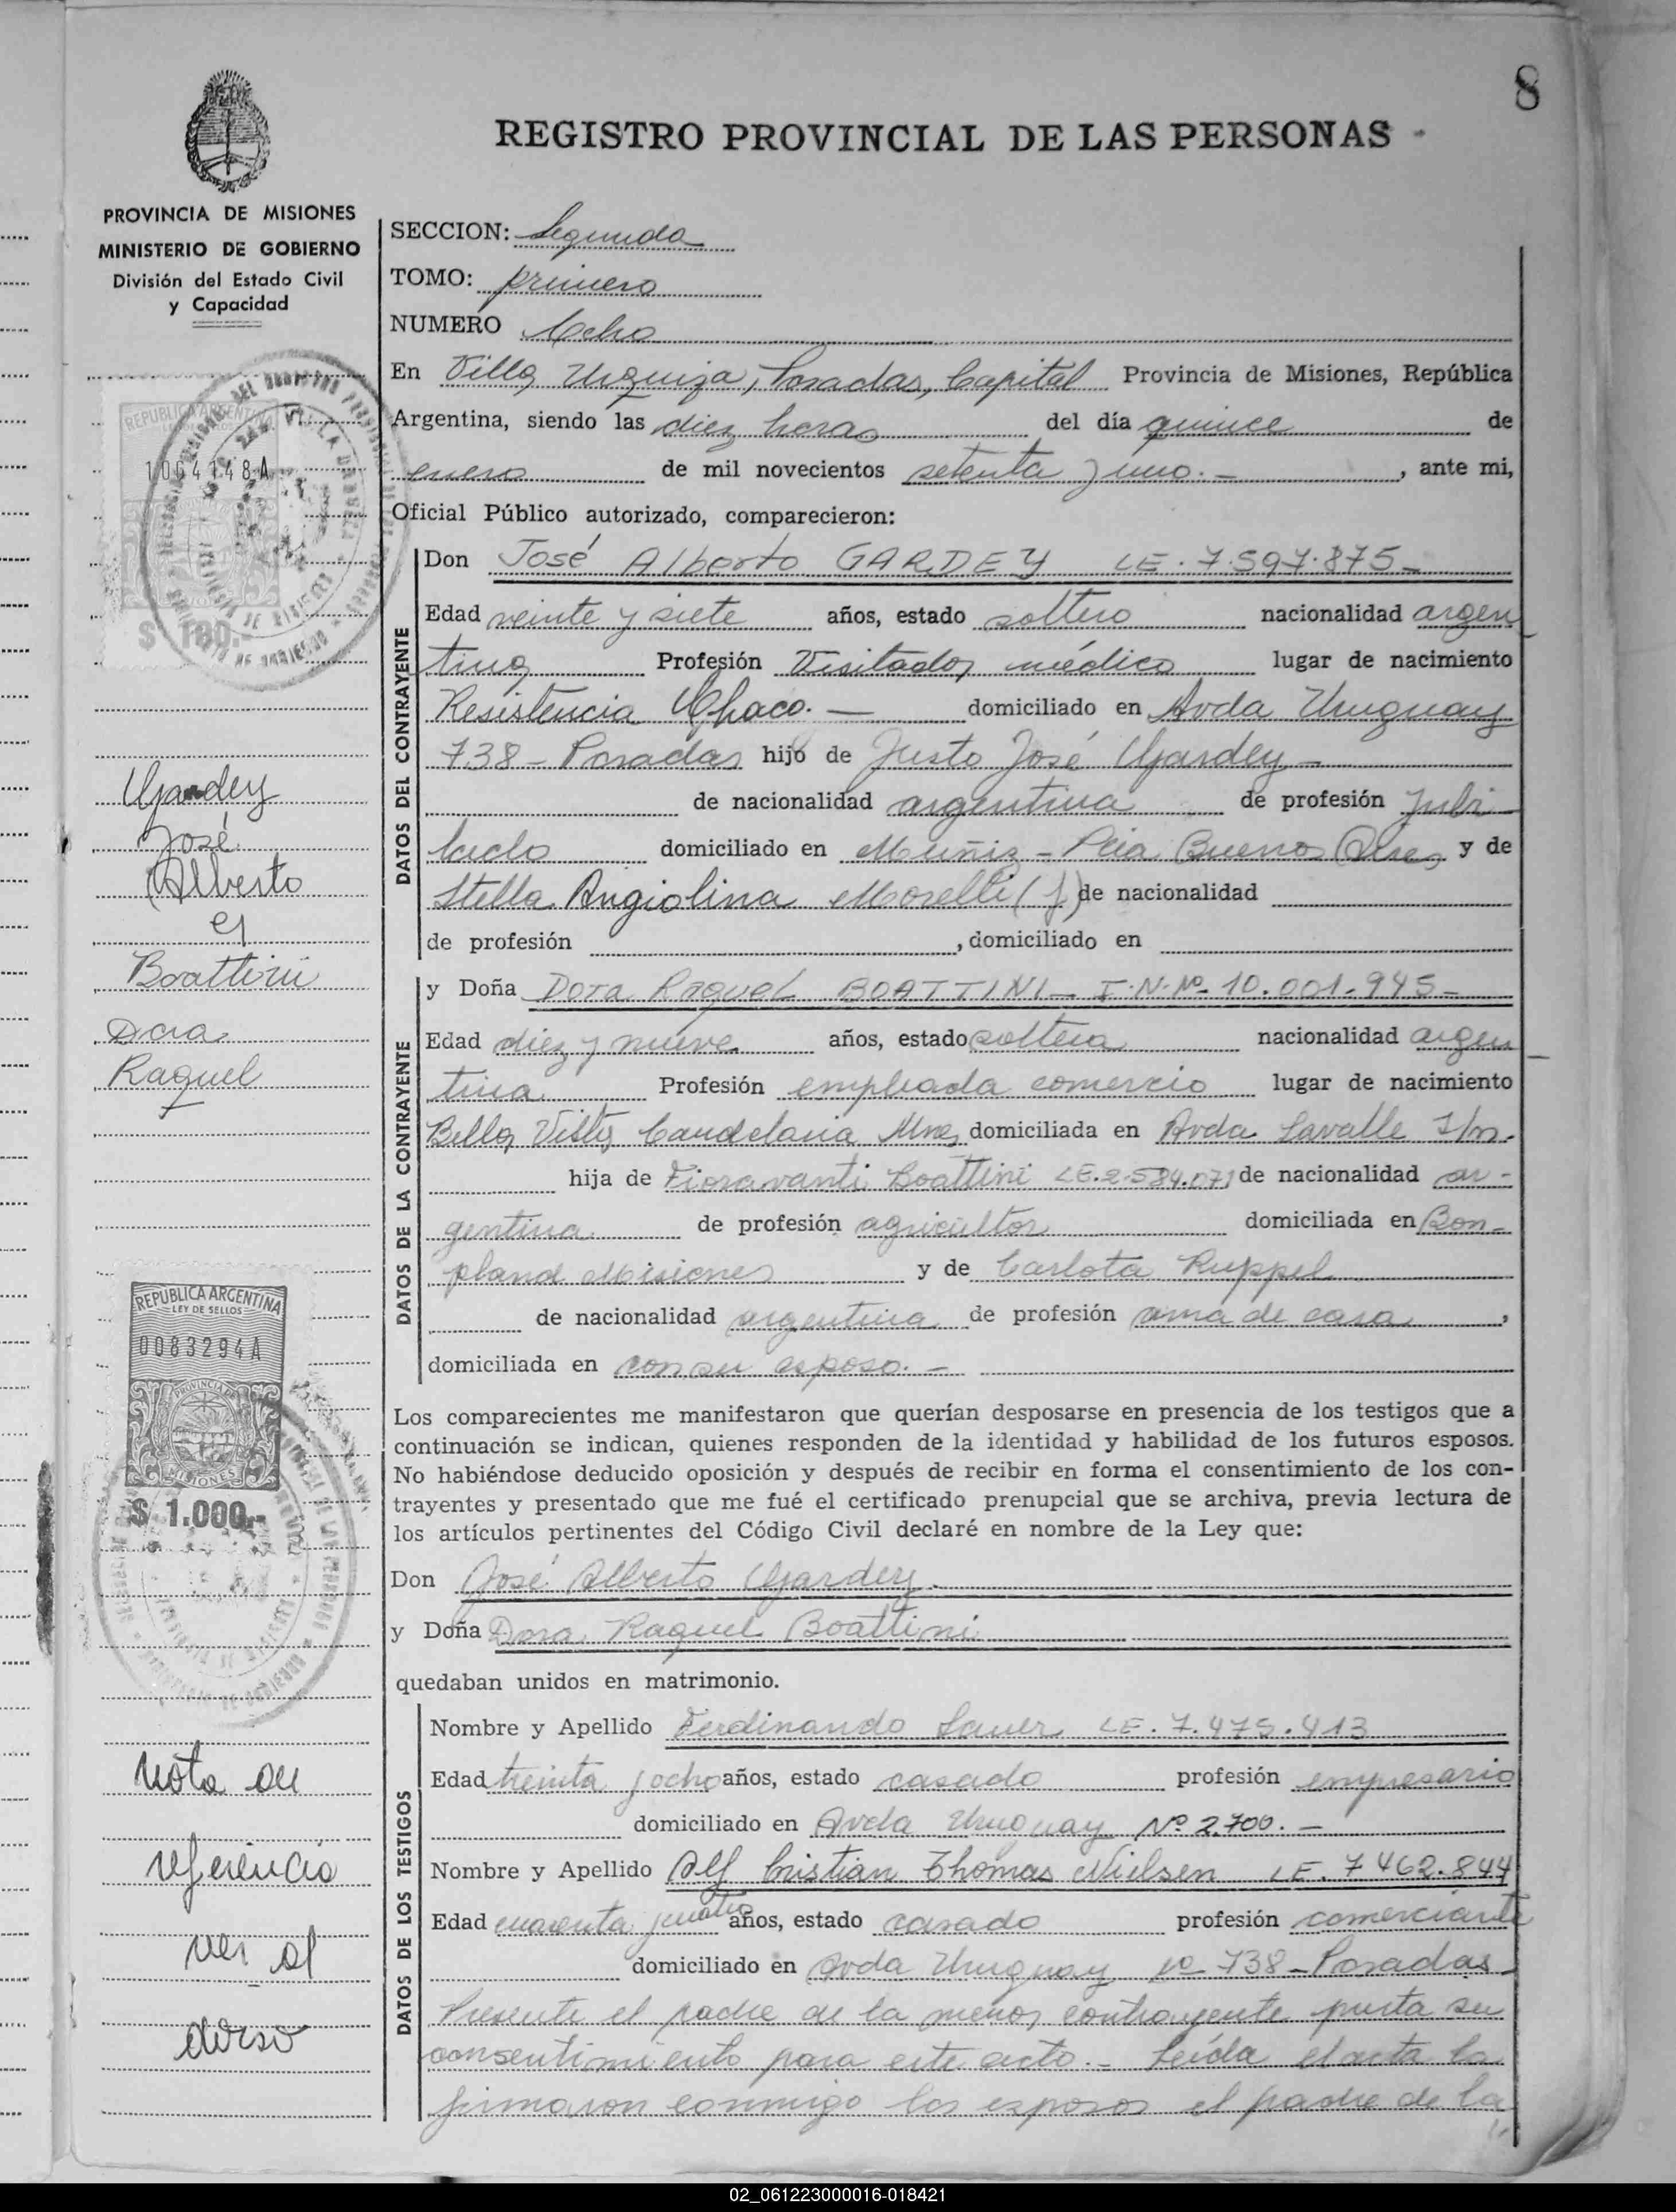 8
REGISTRO PROVINCIAL DE LAS PERSONAS
PROVINCIA DE MISIONES
MINISTERIO DE GOBIERNO
División del Estado Civil
y Capacidad
SECCION: Segunda
TOMO: primero
NUMERO Ocho
En Villa Urquiza, Posadas, Capital Provincia de Misiones, República
Argentina, siendo las diez horas del día quince de
enero de mil novecientos setenta y uno.- , ante mi,
Oficial Público autorizado, comparecieron:
REPUBLICA ARGENTINA
1064148A
$ 100.-
Gardey
José
Alberto
y
Boattini
Dora
Raquel
DATOS DEL CONTRAYENTE
Don José Alberto GARDEY LE. 7.597.875-
Edad veinte y siete años, estado soltero nacionalidad argen
tina Profesión Visitador médico lugar de nacimiento
Resistencia Chaco.- domiciliado en Avda Uruguay
738 - Posadas hijo de Justo José Gardey -
de nacionalidad argentina de profesión jubi
lado domiciliado en Muñiz - Pcia Buenos Aires y de
Stella Angiolina Morelli (f) de nacionalidad
de profesión , domiciliado en
DATOS DE LA CONTRAYENTE
y Doña Dora Raquel BOATTINI - I.N.Nº 10.001.945-
Edad diez y nueve años, estado soltera nacionalidad argen
tina Profesión empleada comercio lugar de nacimiento
Bella Vista Candelaria Mnes domiciliada en Avda Lavalle s/n.
hija de Fioravanti Boattini LE.2.584.071 de nacionalidad ar-
gentina de profesión agricultor domiciliada en Bon-
pland Misiones y de Carlota Ruppel
de nacionalidad argentina de profesión ama de casa ,
domiciliada en con su esposo.-
REPUBLICA ARGENTINA
LEY DE SELLOS
0083294A
PROVINCIA DE
MISIONES
$ 1.000.-
Los comparecientes me manifestaron que querían desposarse en presencia de los testigos que a
continuación se indican, quienes responden de la identidad y habilidad de los futuros esposos.
No habiéndose deducido oposición y después de recibir en forma el consentimiento de los con-
trayentes y presentado que me fué el certificado prenupcial que se archiva, previa lectura de
los artículos pertinentes del Código Civil declaré en nombre de la Ley que:
Don José Alberto Gardey.
y Doña Dora Raquel Boattini
quedaban unidos en matrimonio.
Nota de
referencia
ver al
dorso
DATOS DE LOS TESTIGOS
Nombre y Apellido Ferdinando Sauer LE. 7.475.413
Edad treinta y ocho años, estado casado profesión empresario
domiciliado en Avda Uruguay Nº 2.700.-
Nombre y Apellido Alf Cristian Thomas Nielsen LE. 7462.844
Edad cuarenta y cuatro años, estado casado profesión comerciante
domiciliado en Avda Uruguay nº 738 - Posadas
Presente el padre de la menor contrayente presta su
consentimiento para este acto.- Leída el acta la
firmaron conmigo los esposos el padre de la
02_061223000016-018421